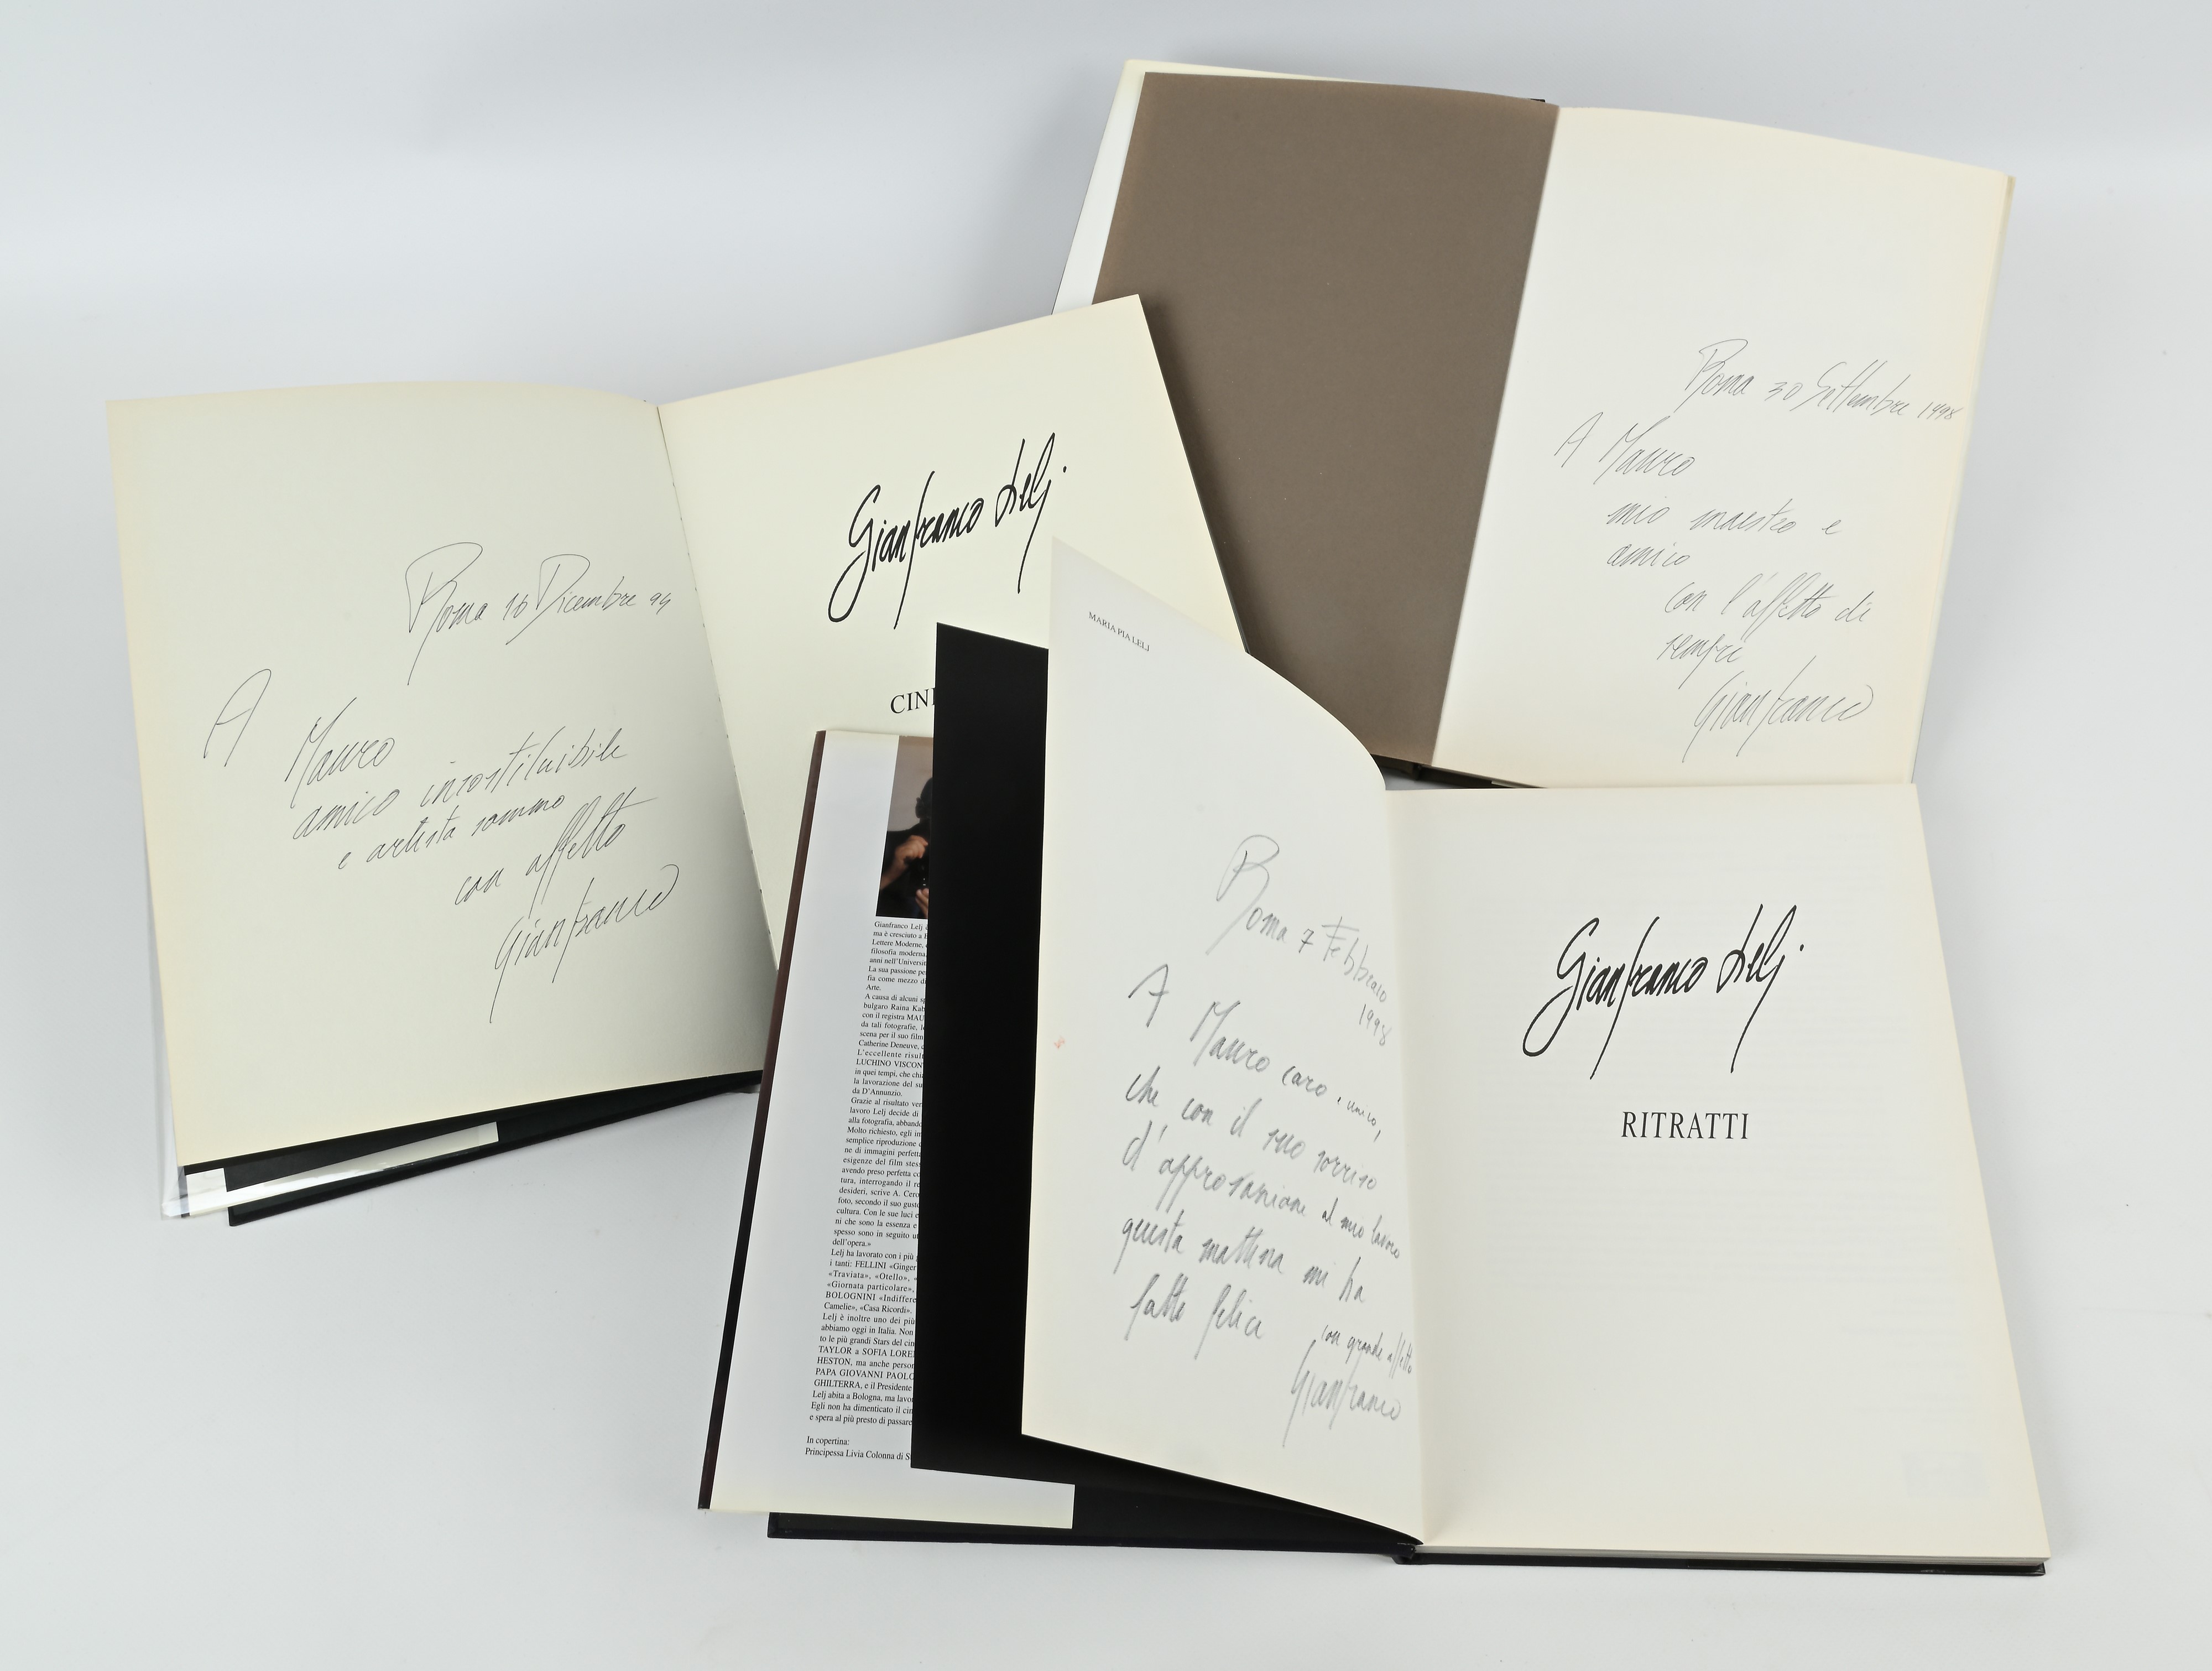 Roma 30 Settembre 1998
A Mauro
mio maestro e
amico
con l'affetto di
sempre
Gianfranco
Roma 16 Dicembre 94
A
Mauro
amico insostituibile
e artista sommo
con affetto
Gianfranco
Gianfranco Lelj
CINE
MARIA PIA LELJ
Gianfranco Lelj
ma è cresciuto a
Lettere Moderne,
filosofia moderna
anni nell'Universi
La sua passione pe
fia come mezzo d
Arte.
A causa di alcuni
bulgaro Raina Kab
con il regista MAU
da tali fotografie,
scena per il suo film
Catherine Deneuve,
L'eccellente risult
LUCHINO VISCON
in quei tempi, che chi
la lavorazione del su
da D'Annunzio.
Grazie al risultato ver
lavoro Lelj decide di
alla fotografia, abband
Molto richiesto, egli im
semplice riproduzione
ne di immagini perfett
esigenze del film stes
avendo preso perfetta co
tura, interrogando il re
desideri, scrive A. Cero
foto, secondo il suo gust
cultura. Con le sue luci e
ni che sono la essenza e
spesso sono in seguito ut
dell'opera.»
Lelj ha lavorato con i più
i tanti: FELLINI «Ginger
«Traviata», «Otello»,
«Giornata particolare»,
BOLOGNINI «Indiffere
Camelie», «Casa Ricordi».
Lelj è inoltre uno dei più
abbiamo oggi in Italia. Non
to le più grandi Stars del cin
TAYLOR a SOFIA LORE
HESTON, ma anche person
PAPA GIOVANNI PAOLO
GHILTERRA, e il Presidente
Lelj abita a Bologna, ma lavo
Egli non ha dimenticato il cin
e spera al più presto di passare
In copertina:
Principessa Livia Colonna di S
Roma 7 Febbraio
1998
A
Mauro caro e unico,
che con il suo sorriso
d'approvazione al mio lavoro
questa mattina mi ha
fatto felice
con grande affetto
Gianfranco
Gianfranco Lelj
RITRATTI